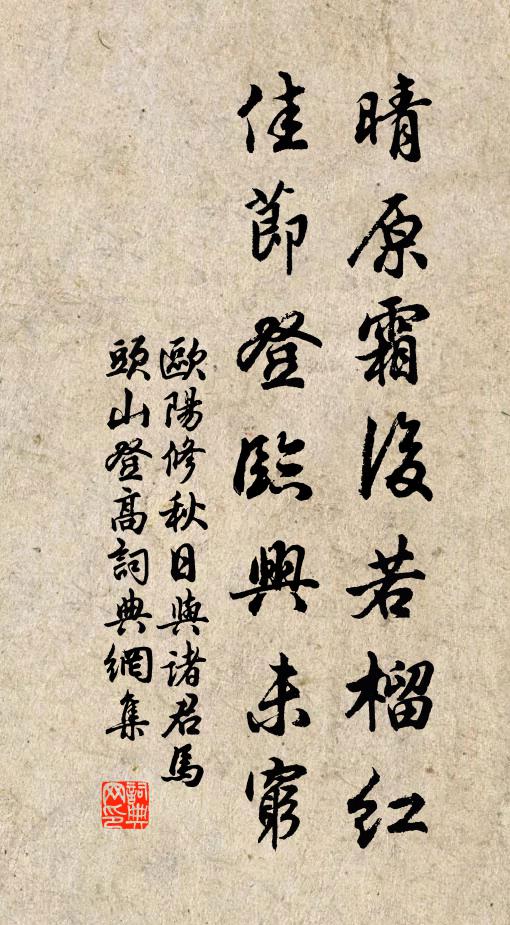 晴原霜後若榴紅
佳節登臨興未窮
歐陽修秋日與諸君馬
頭山登高詞典網集
詞典
网印